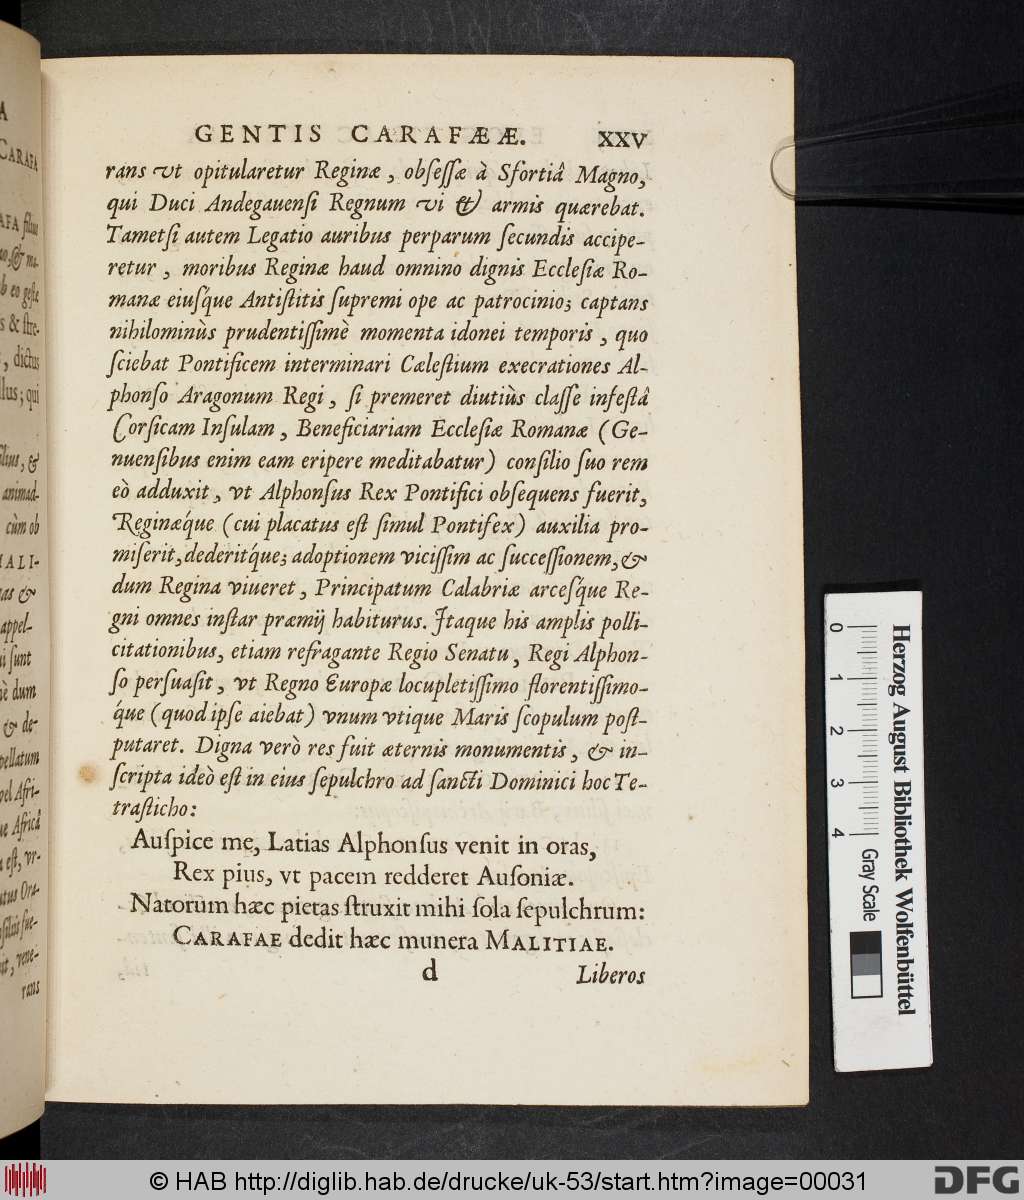 GENTIS CARAFÆÆ. XXV
rans vt opitularetur Reginæ, obſeſſæ à Sfortiâ Magno,
qui Duci Andegauenſi Regnum vi & armis quærebat.
Tametſi autem Legatio auribus perparum ſecundis accipe-
retur, moribus Reginæ haud omnino dignis Eccleſiæ Ro-
manæ eiuſq́ue Antiſtitis ſupremi ope ac patrocinio; captans
nihilominùs prudentiſſimè momenta idonei temporis, quo
ſciebat Pontificem interminari Cæleſtium execrationes Al-
phonſo Aragonum Regi, ſi premeret diutiùs claſſe infeſtâ
Corſicam Inſulam, Beneficiariam Eccleſiæ Romanæ (Ge-
nuenſibus enim eam eripere meditabatur) conſilio ſuo rem
eò adduxit, vt Alphonſus Rex Pontifici obſequens fuerit,
Reginæq́ue (cui placatus eſt ſimul Pontifex) auxilia pro-
miſerit, dederitq́ue; adoptionem viciſſim ac ſucceſſionem, &
dum Regina viueret, Principatum Calabriæ arceſq́ue Re-
gni omnes inſtar præmij habiturus. Itaque his amplis polli-
citationibus, etiam refragante Regio Senatu, Regi Alphon-
ſo perſuaſit, vt Regno Europæ locupletiſſimo florentiſſimo-
q́ue (quod ipſe aiebat) vnum vtique Maris ſcopulum poſt-
putaret. Digna verò res fuit æternis monumentis, & in-
ſcripta ideò eſt in eius ſepulchro ad ſancti Dominici hoc Te-
traſticho:
Auſpice me, Latias Alphonſus venit in oras,
Rex pius, vt pacem redderet Auſoniæ.
Natorum hæc pietas ſtruxit mihi ſola ſepulchrum:
CARAFAE dedit hæc munera MALITIAE.
d Liberos
0 1 2 3 4 Gray Scale
Herzog August Bibliothek Wolfenbüttel
© HAB http://diglib.hab.de/drucke/uk-53/start.htm?image=00031
DFG